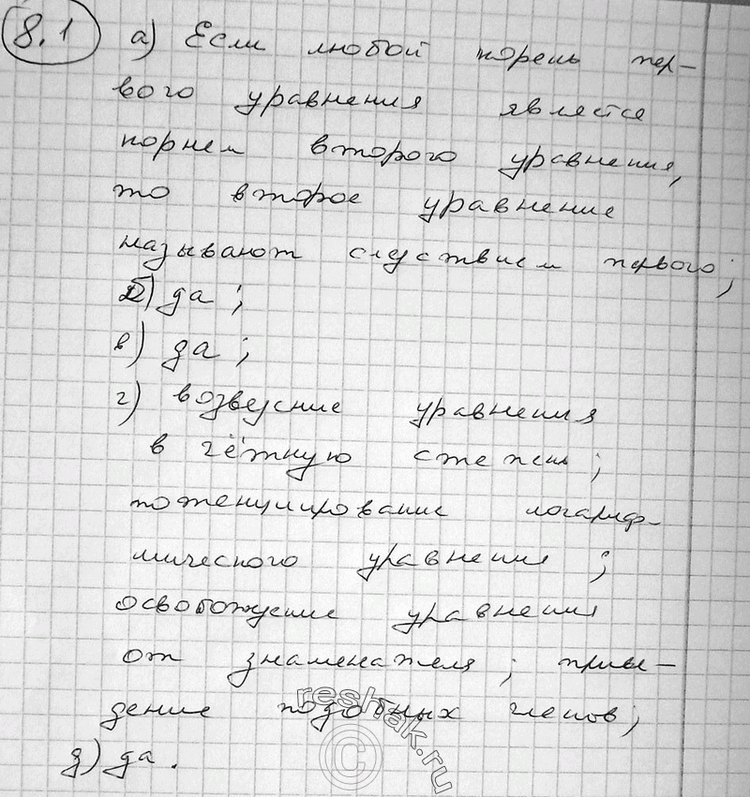 8.1 а) Если любой корень пер-
вого уравнения является
корнем второго уравнения,
то второе уравнение
называют следствием первого;
б) да;
в) да;
г) возведение уравнения
в чётную степень;
потенцирование логариф-
мического уравнения;
освобождение уравнения
от знаменателя; приве-
дение подобных членов;
д) да.
reshak.ru
©